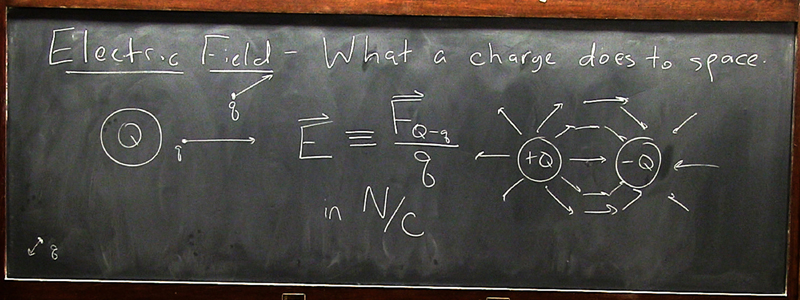 Electric Field - What a charge does to space.
q
Q
q
E ≡ F Q-q / q
in N/C
+Q
-Q
q